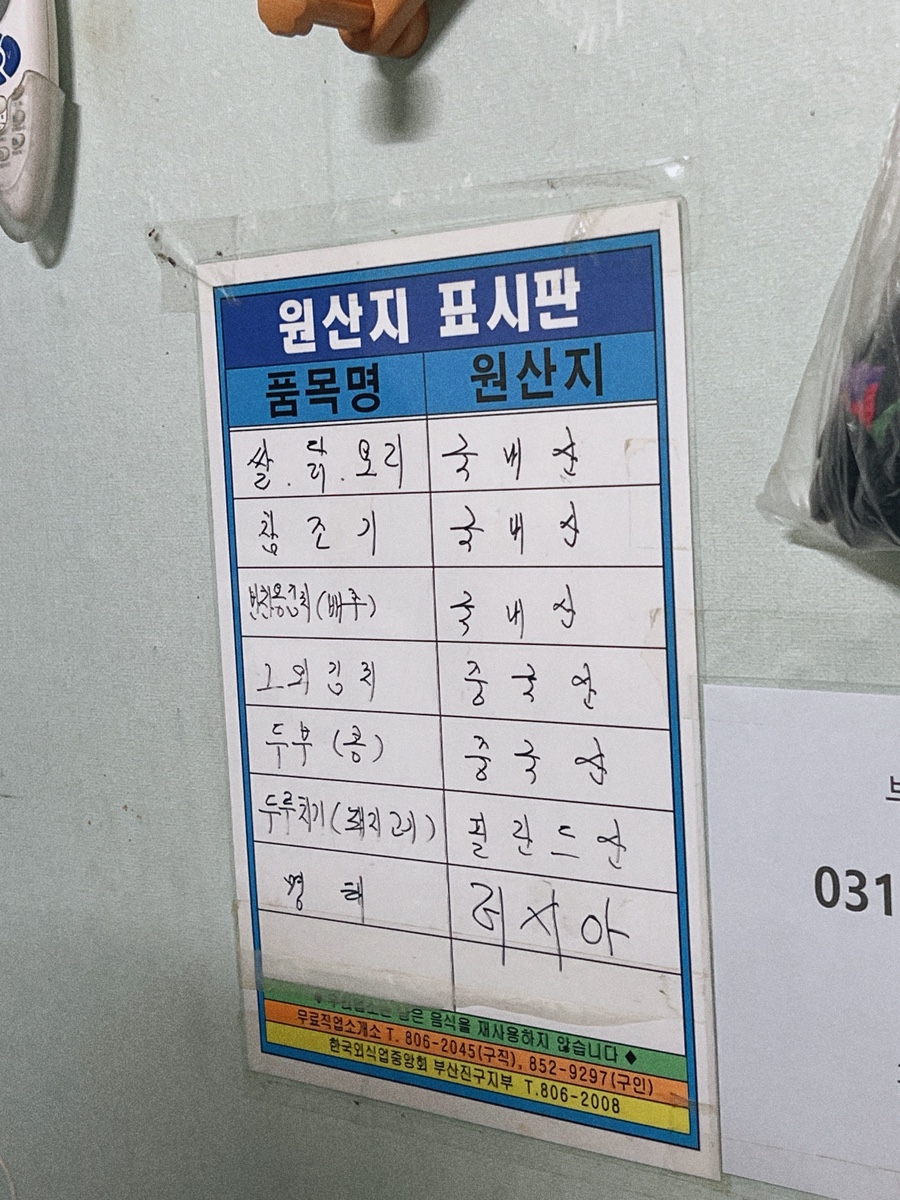 원산지 표시판
품목명 원산지
쌀. 닭. 오리 국내산
참조기 국내산
반찬용김치(배추) 국내산
그외김치 중국산
두부(콩) 중국산
두루치기(돼지고기) 핀란드산
명태 러시아
◆ 우리업소는 남은 음식을 재사용하지 않습니다 ◆
무료직업소개소 T. 806-2045(구직), 852-9297(구인)
한국외식업중앙회 부산진구지부 T.806-2008
031